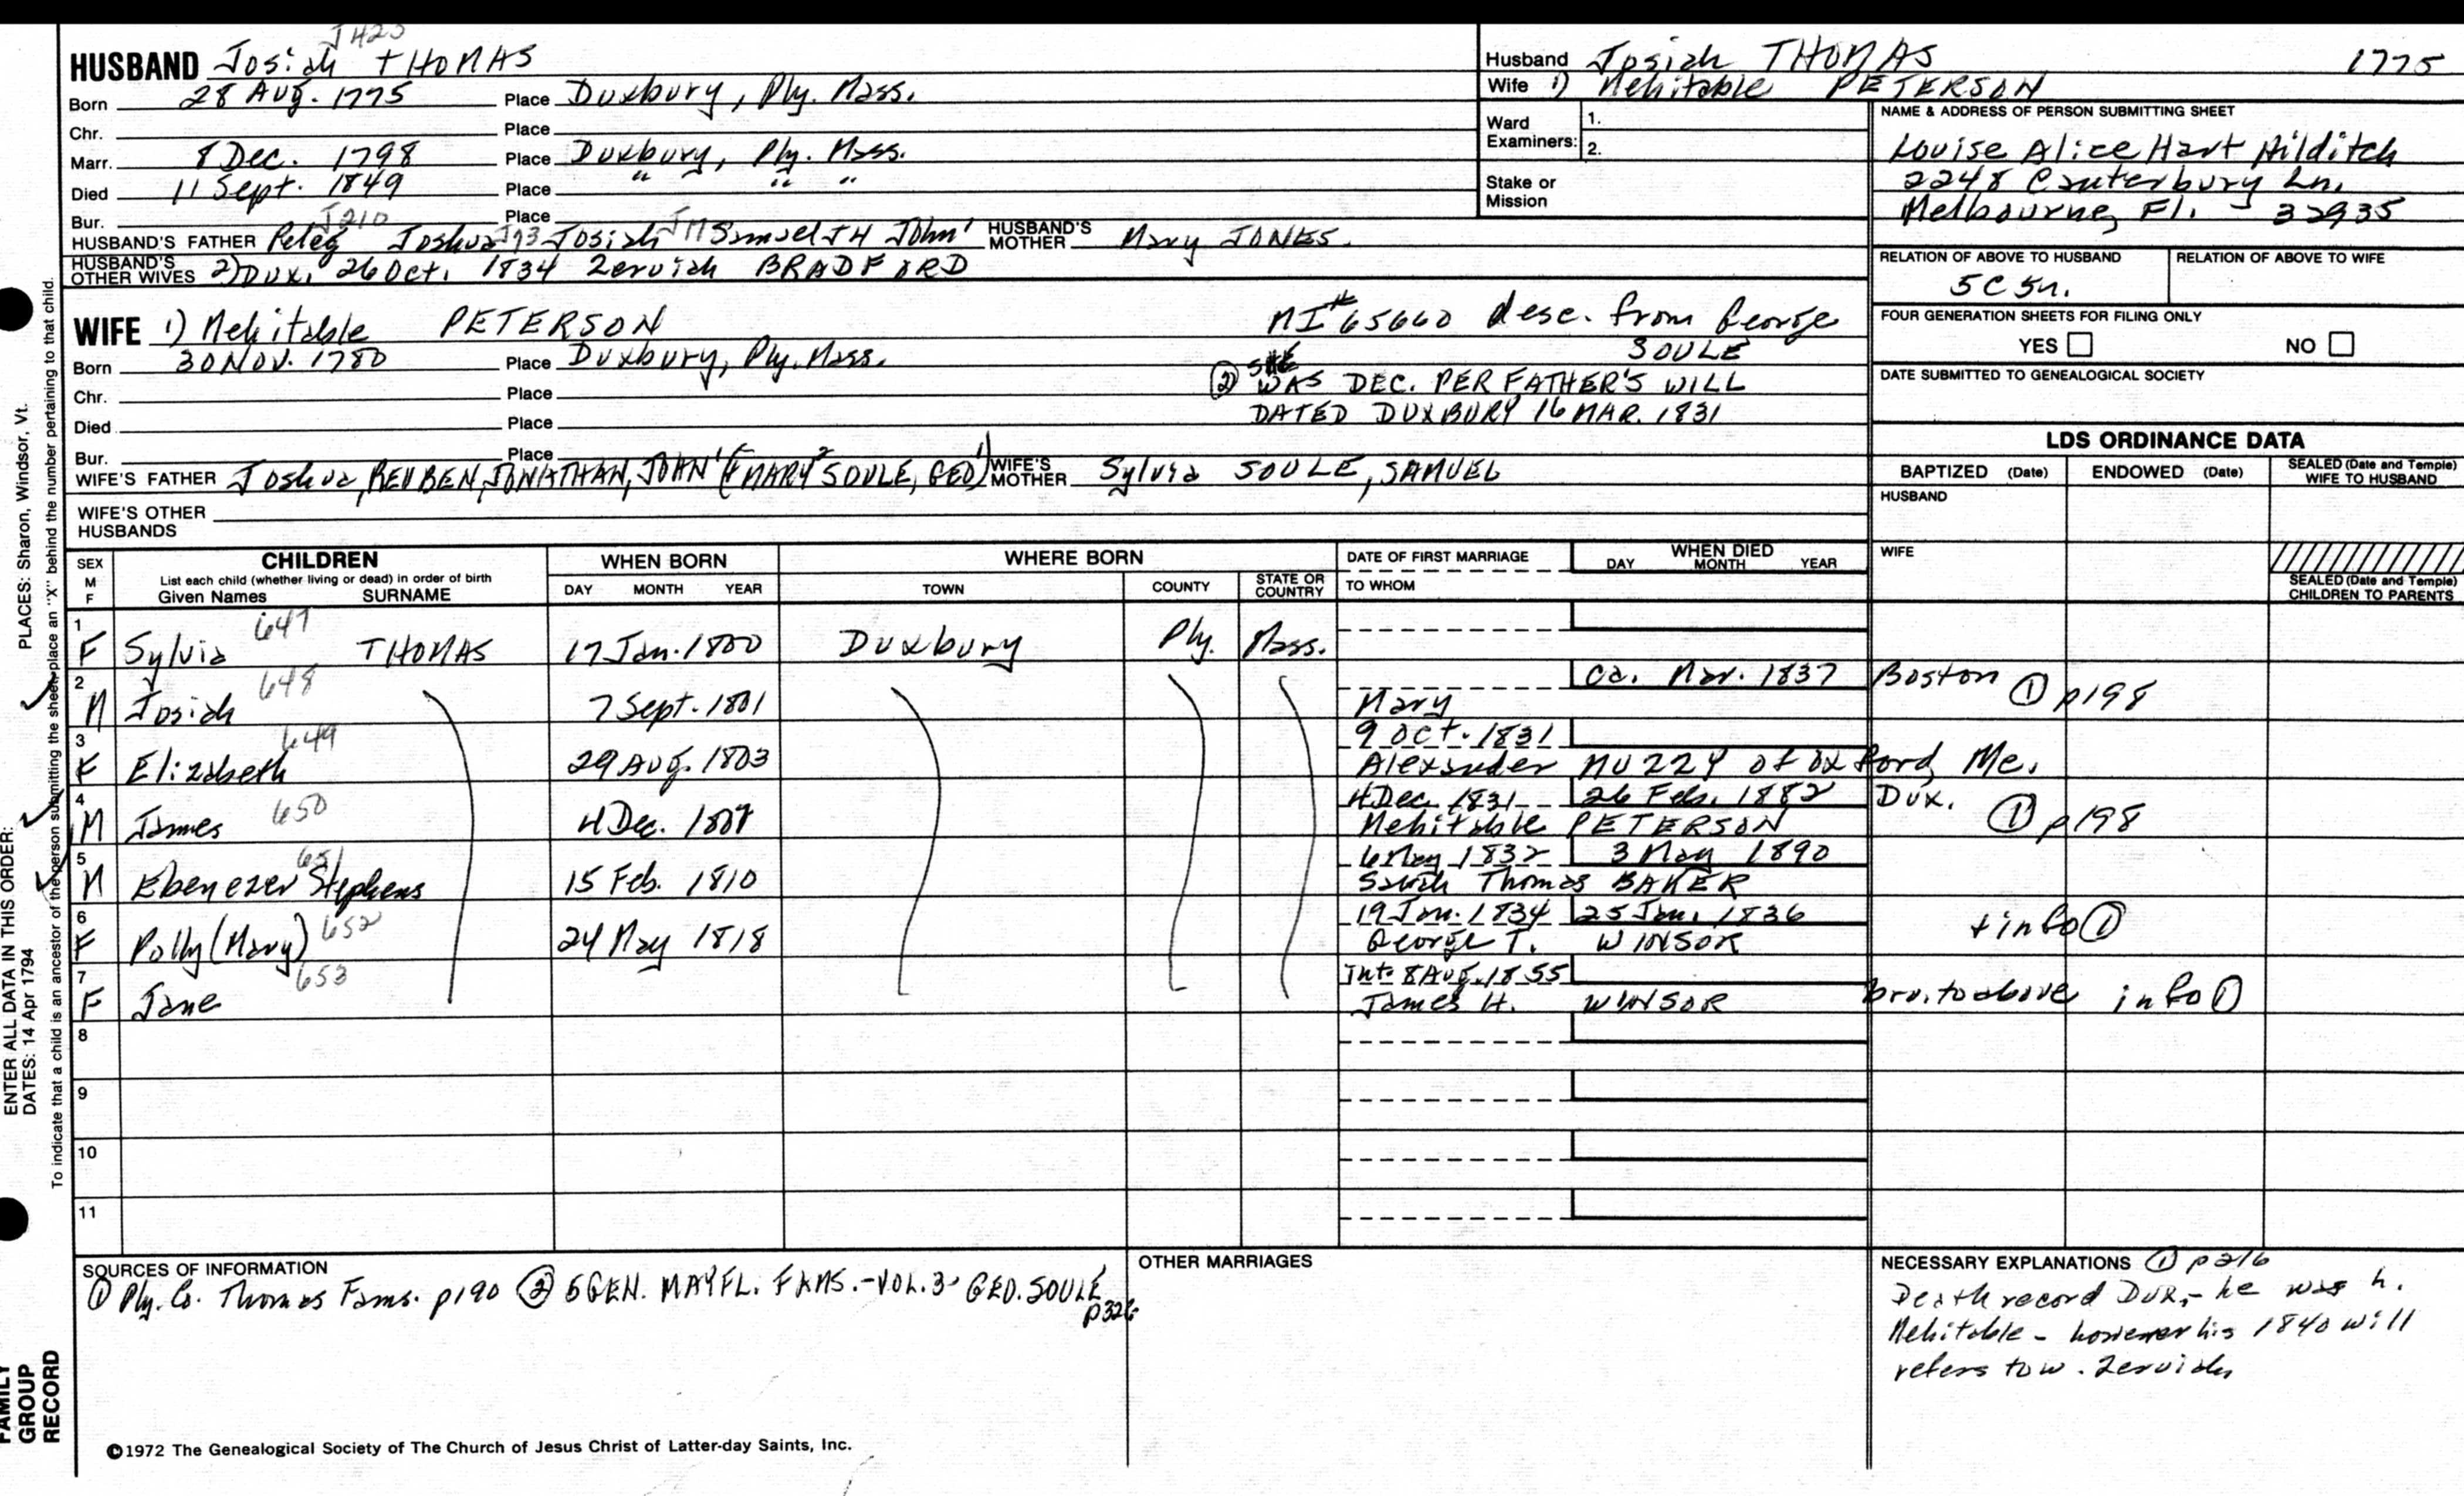 J423
HUSBAND Josiah THOMAS
Born 28 Aug. 1775 Place Duxbury, Ply. Mass.
Chr. Place
Marr. 8 Dec. 1798 Place Duxbury, Ply. Mass.
Died 11 Sept. 1849 Place " " "
Bur. Place
J210
HUSBAND'S FATHER Peleg Joshua J73 Josiah J11 Samuel J4 John' HUSBAND'S MOTHER Mary JONES.
HUSBAND'S OTHER WIVES 2) Dux. 26 Oct. 1834 Zeruiah BRADFORD
Husband Josiah THOMAS 1775
Wife 1) Mehitable PETERSON
Ward Examiners: 1.
2.
Stake or Mission
NAME & ADDRESS OF PERSON SUBMITTING SHEET
Louise Alice Hart Hilditch
2248 Canterbury Ln.
Melbourne, Fl. - 32935
RELATION OF ABOVE TO HUSBAND RELATION OF ABOVE TO WIFE
5C5r.
FOUR GENERATION SHEETS FOR FILING ONLY
YES NO
DATE SUBMITTED TO GENEALOGICAL SOCIETY
WIFE 1) Mehitable PETERSON
Born 30 Nov. 1780 Place Duxbury, Ply. Mass.
Chr. Place
Died Place
Bur. Place
MI# 65660 desc. from George
SOULE
② SHE WAS DEC. PER FATHER'S WILL
DATED DUXBURY 16 MAR. 1831
WIFE'S FATHER Joshua, REUBEN, JONATHAN, JOHN' (& MARY² SOULE, GEO¹) WIFE'S MOTHER Sylvia SOULE, SAMUEL
WIFE'S OTHER HUSBANDS
LDS ORDINANCE DATA
BAPTIZED (Date) ENDOWED (Date) SEALED (Date and Temple) WIFE TO HUSBAND
HUSBAND
WIFE
SEALED (Date and Temple) CHILDREN TO PARENTS
SEX M F
CHILDREN
List each child (whether living or dead) in order of birth
Given Names SURNAME
WHEN BORN
DAY MONTH YEAR
WHERE BORN
TOWN COUNTY STATE OR COUNTRY
DATE OF FIRST MARRIAGE
TO WHOM
WHEN DIED
DAY MONTH YEAR
1 F Sylvia 647 THOMAS 17 Jan. 1800 Duxbury Ply. Mass.
2 M Josiah 648 7 Sept. 1801 Mary ca. Mar. 1837 Boston ① p198
3 F Elizabeth 649 29 Aug. 1803 9 Oct. 1831
Alexander MUZZY of Oxford, Me.
4 M James 650 4 Dec. 1807 4 Dec. 1831 26 Feb. 1882 Dux. ① p198
Mehitable PETERSON
5 M Ebenezer Stephens 651 15 Feb. 1810 6 May 1832 3 May 1890
Sarah Thomas BAKER
6 F Polly (Mary) 652 24 May 1818 19 Jan. 1834 25 Jan. 1836 + info ①
George T. WINSOR
7 F Jane 653 Int. 8 Aug. 1855
James H. WINSOR bro. to above info ①
8
9
10
11
SOURCES OF INFORMATION
① Ply. Co. Thomas Fams. p190 ② 5 GEN. MAYFL. FAMS. -VOL. 3- GEO. SOULE
p326
OTHER MARRIAGES
NECESSARY EXPLANATIONS ① p216
Death record Dux. - he was h.
Mehitable - however his 1840 will
refers to w. Zeruiah
©1972 The Genealogical Society of The Church of Jesus Christ of Latter-day Saints, Inc.
FAMILY GROUP RECORD
ENTER ALL DATA IN THIS ORDER:
DATES: 14 Apr 1794 PLACES: Sharon, Windsor, Vt.
To indicate that a child is an ancestor of the person submitting the sheet, place an "X" behind the number pertaining to that child.